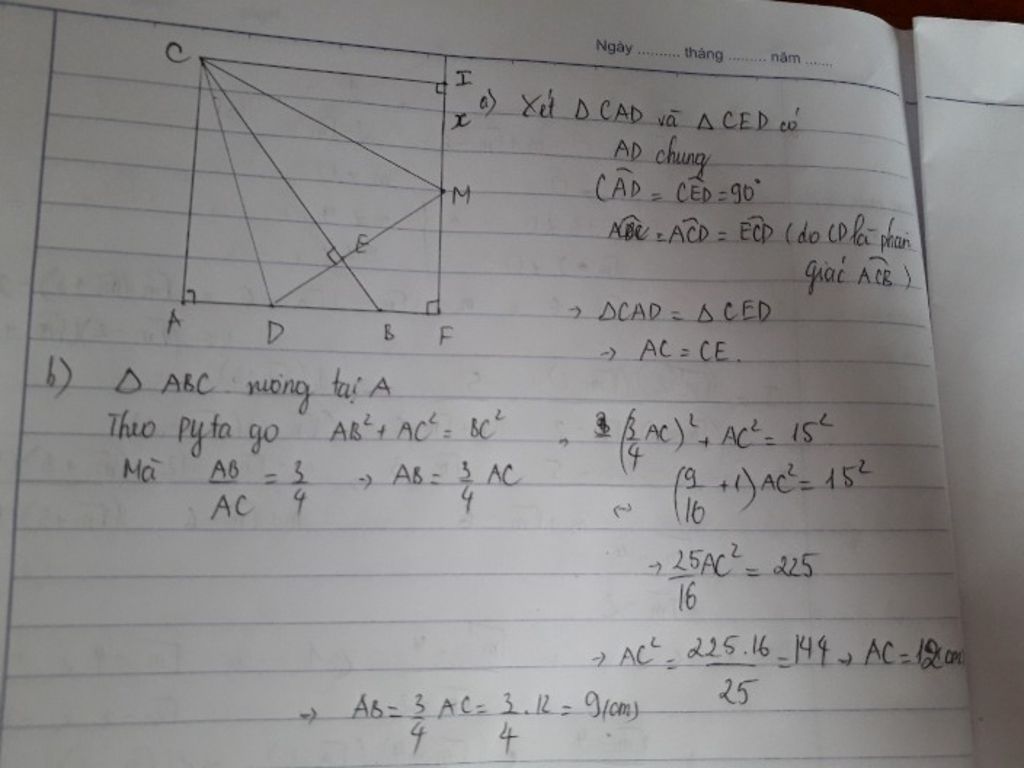 Ngày .......... tháng ......... năm ......
C
I
x
M
E
A
D
B
F
a) Xét Δ CAD và Δ CED có
AD chung
CAD = CED = 90°
= ACD = ECD (do CD là phân
giác ACB)
→ ΔCAD = Δ CED
→ AC = CE.
b) Δ ABC vuông tại A
Theo pyta go AB² + AC² = BC²
, (3/4 AC)² + AC² = 15²
Mà AB/AC = 3/4 → AB = 3/4 AC
(9/16 + 1) AC² = 15²
→ 25/16 AC² = 225
→ AC² = 225.16/25 = 144 → AC = 12 cm
→ AB = 3/4 AC = 3/4 . 12 = 9 (cm)